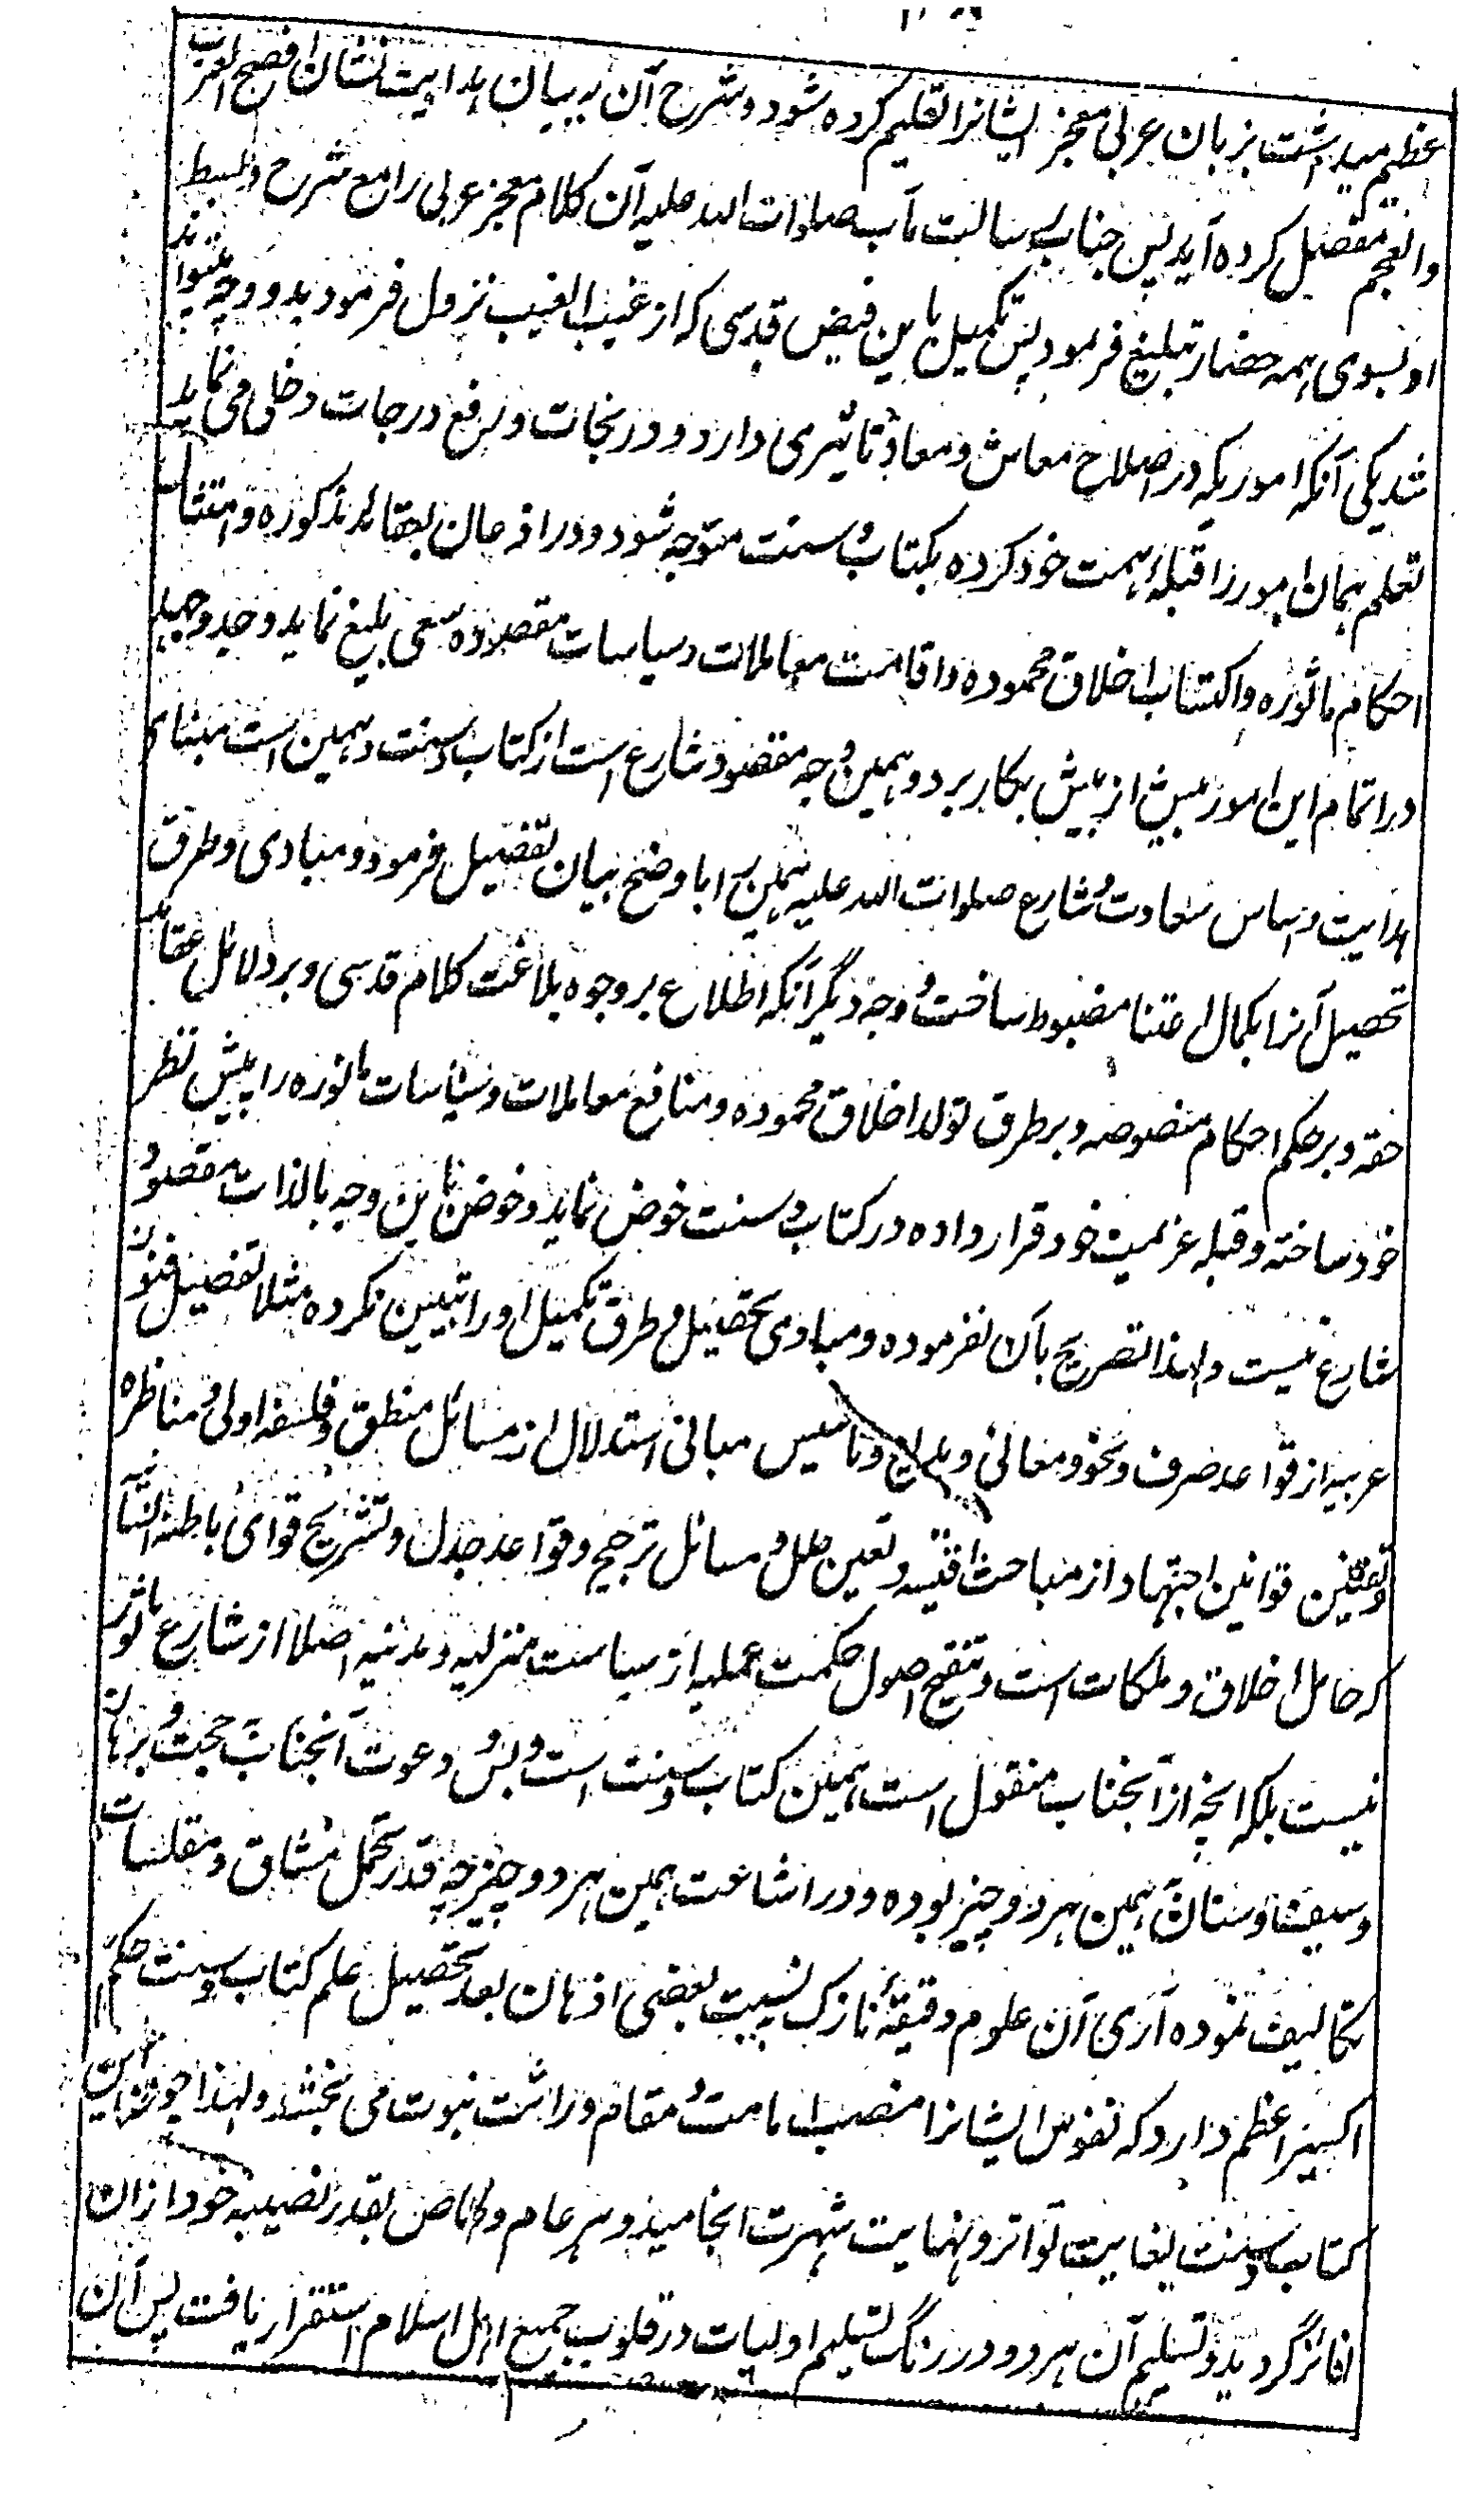 عظیم میداشت بزبان عربی معجز ایشانرا تعلیم کرده شود و شرح آن به بیان هدایت نشان افصح العرب
والعجم مفصل کرده آید پس جناب رسالت مآب صلوات الله علیه آن کلام معجز عربی را مع شرح و بسط
او بسوی همه حضار تبلیغ فرمود پس تکمیل باین فیض قدسی که از غیب الغیب نزول فرموده بدو وجه میتواند
شد یکی آنکه اموریکه در اصلاح معاش و معاد تاثیری دارد و در نجات و رفع درجات دخلی می نماید
تعلم همان امور را قبله همت خود کرده بکتاب و سنت متوجه شود و در اذعان بعقائد مذکوره و امتثال
احکام ماثوره و اکتساب اخلاق محموده و اقامت معاملات و سیاسات مقصوده سعی بلیغ نماید و جد و جهد
در اتمام این امور بیش از بیش بکار برد و همین وجه مقصود شارع است از کتاب و سنت و همین است مبنای
هدایت و اساس سعادت و شارع صلوات الله علیه همین را باوضح بیان تفصیل فرمود و مبادی و طرق
تحصیل آنرا بکمال اعتنا مضبوط ساخت و وجه دیگر آنکه اطلاع بر وجوه بلاغت کلام قدسی و بر دلائل عقائد
حقه و بر حکم احکام منصوصه و بر طرق تولد اخلاق محموده و منافع معاملات و سیاسات ماثوره را پیش نظر
خود ساخته و قبله عزیمت خود قرار داده در کتاب و سنت خوض نماید و خوض باین وجه بالذات مقصود
شارع نیست و لهذا تصریح بآن نفرموده و مبادی تحصیل و طرق تکمیل او را تبیین نکرده مثلا تفصیل فنون
عربیه از قواعد صرف و نحو و معانی و بدایع و تاسیس مبانی استدلال از مسائل منطق و فلسفه اولی و مناظره
و تقنین قوانین اجتهاد از مباحث اقیسه و تعین علل و مسائل ترجیح و قواعد جدل و تشریح قوای باطنه انسانیه
که حامل اخلاق و ملکات است و تنقیح اصول حکمت عملیه از سیاست منزلیه و مدنیه اصلا از شارع ماثور
نیست بلکه آنچه از آنجناب منقول است همین کتاب و سنت است و بس و دعوت آنجناب بحجت و برهان
و سیف و سنان همین هر دو چیز بوده و در اشاعت همین هر دو چیز چه قدر تحمل مشاق و مقاسات
تکالیف نموده آری آن علوم دقیقه نازک به نسبت بعضی اذهان بعد تحصیل علم کتاب و سنت حکم
اکسیر اعظم دارد که نفوس ایشانرا منصب امامت و مقام وراثت نبوت می بخشد و لهذا چون شان این
کتاب و سنت بغایت تواتر و نهایت شهرت انجامید و هر عام و خاص بقدر نصیبه خود از ان
فائز گردید و تسلیم آن هر دو در رنگ تسلیم اولیات در قلوب جمیع اهل اسلام استقرار یافت پس آن